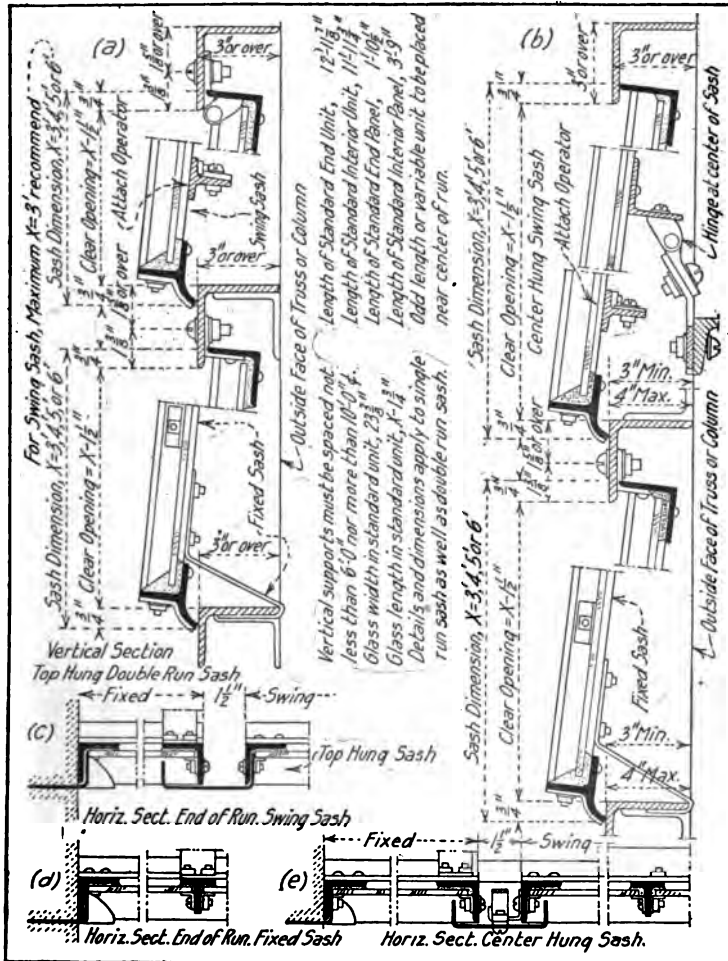 (a)
3"or over
1 3/8"or over
1 3/8"
3/4"
For Swing Sash, Maximum X=3' recommend
Sash Dimension, X=3',4',5'or6'
Clear Opening = X-1 1/2"
Attach Operator
Swing Sash
3"or over
3/4"
1 3/8"or over
1 3/8"
3/4"
Sash Dimension, X=3',4',5'or6'
Clear Opening = X-1 1/2"
Fixed Sash
3"or over
3/4"
Outside Face of Truss or Column
Vertical Section
Top Hung Double Run Sash
Length of Standard End Unit,
Length of Standard Interior Unit,
Length of Standard End Panel,
Length of Standard Interior Panel, 3'-9"
Odd length or variable unit to be placed
near center of run.
Vertical supports must be spaced not
less than 6'-0" nor more than 10'-0"
Glass width in standard unit,
Glass length in standard unit,
Details and dimensions apply to single
run sash as well as double run sash.
(b)
3"or over
3"or over
3/4"
Sash Dimension, X=3',4',5'or6'
Clear Opening = X-1 1/2"
Center Hung Swing Sash
Attach Operator
Hinge at center of Sash
3"Min.
4"Max.
3/4"
1 3/8"or over
1 3/8"
3/4"
Sash Dimension, X=3',4',5'or6'
Clear Opening = X-1 1/2"
Fixed Sash
3"Min.
4"Max.
3/4"
Outside Face of Truss or Column
(c)
Fixed
1 1/2"
Swing
Top Hung Sash
Horiz. Sect. End of Run. Swing Sash
(d)
Horiz. Sect. End of Run. Fixed Sash
(e)
Fixed
1 1/2"
Swing
Horiz. Sect. Center Hung Sash.